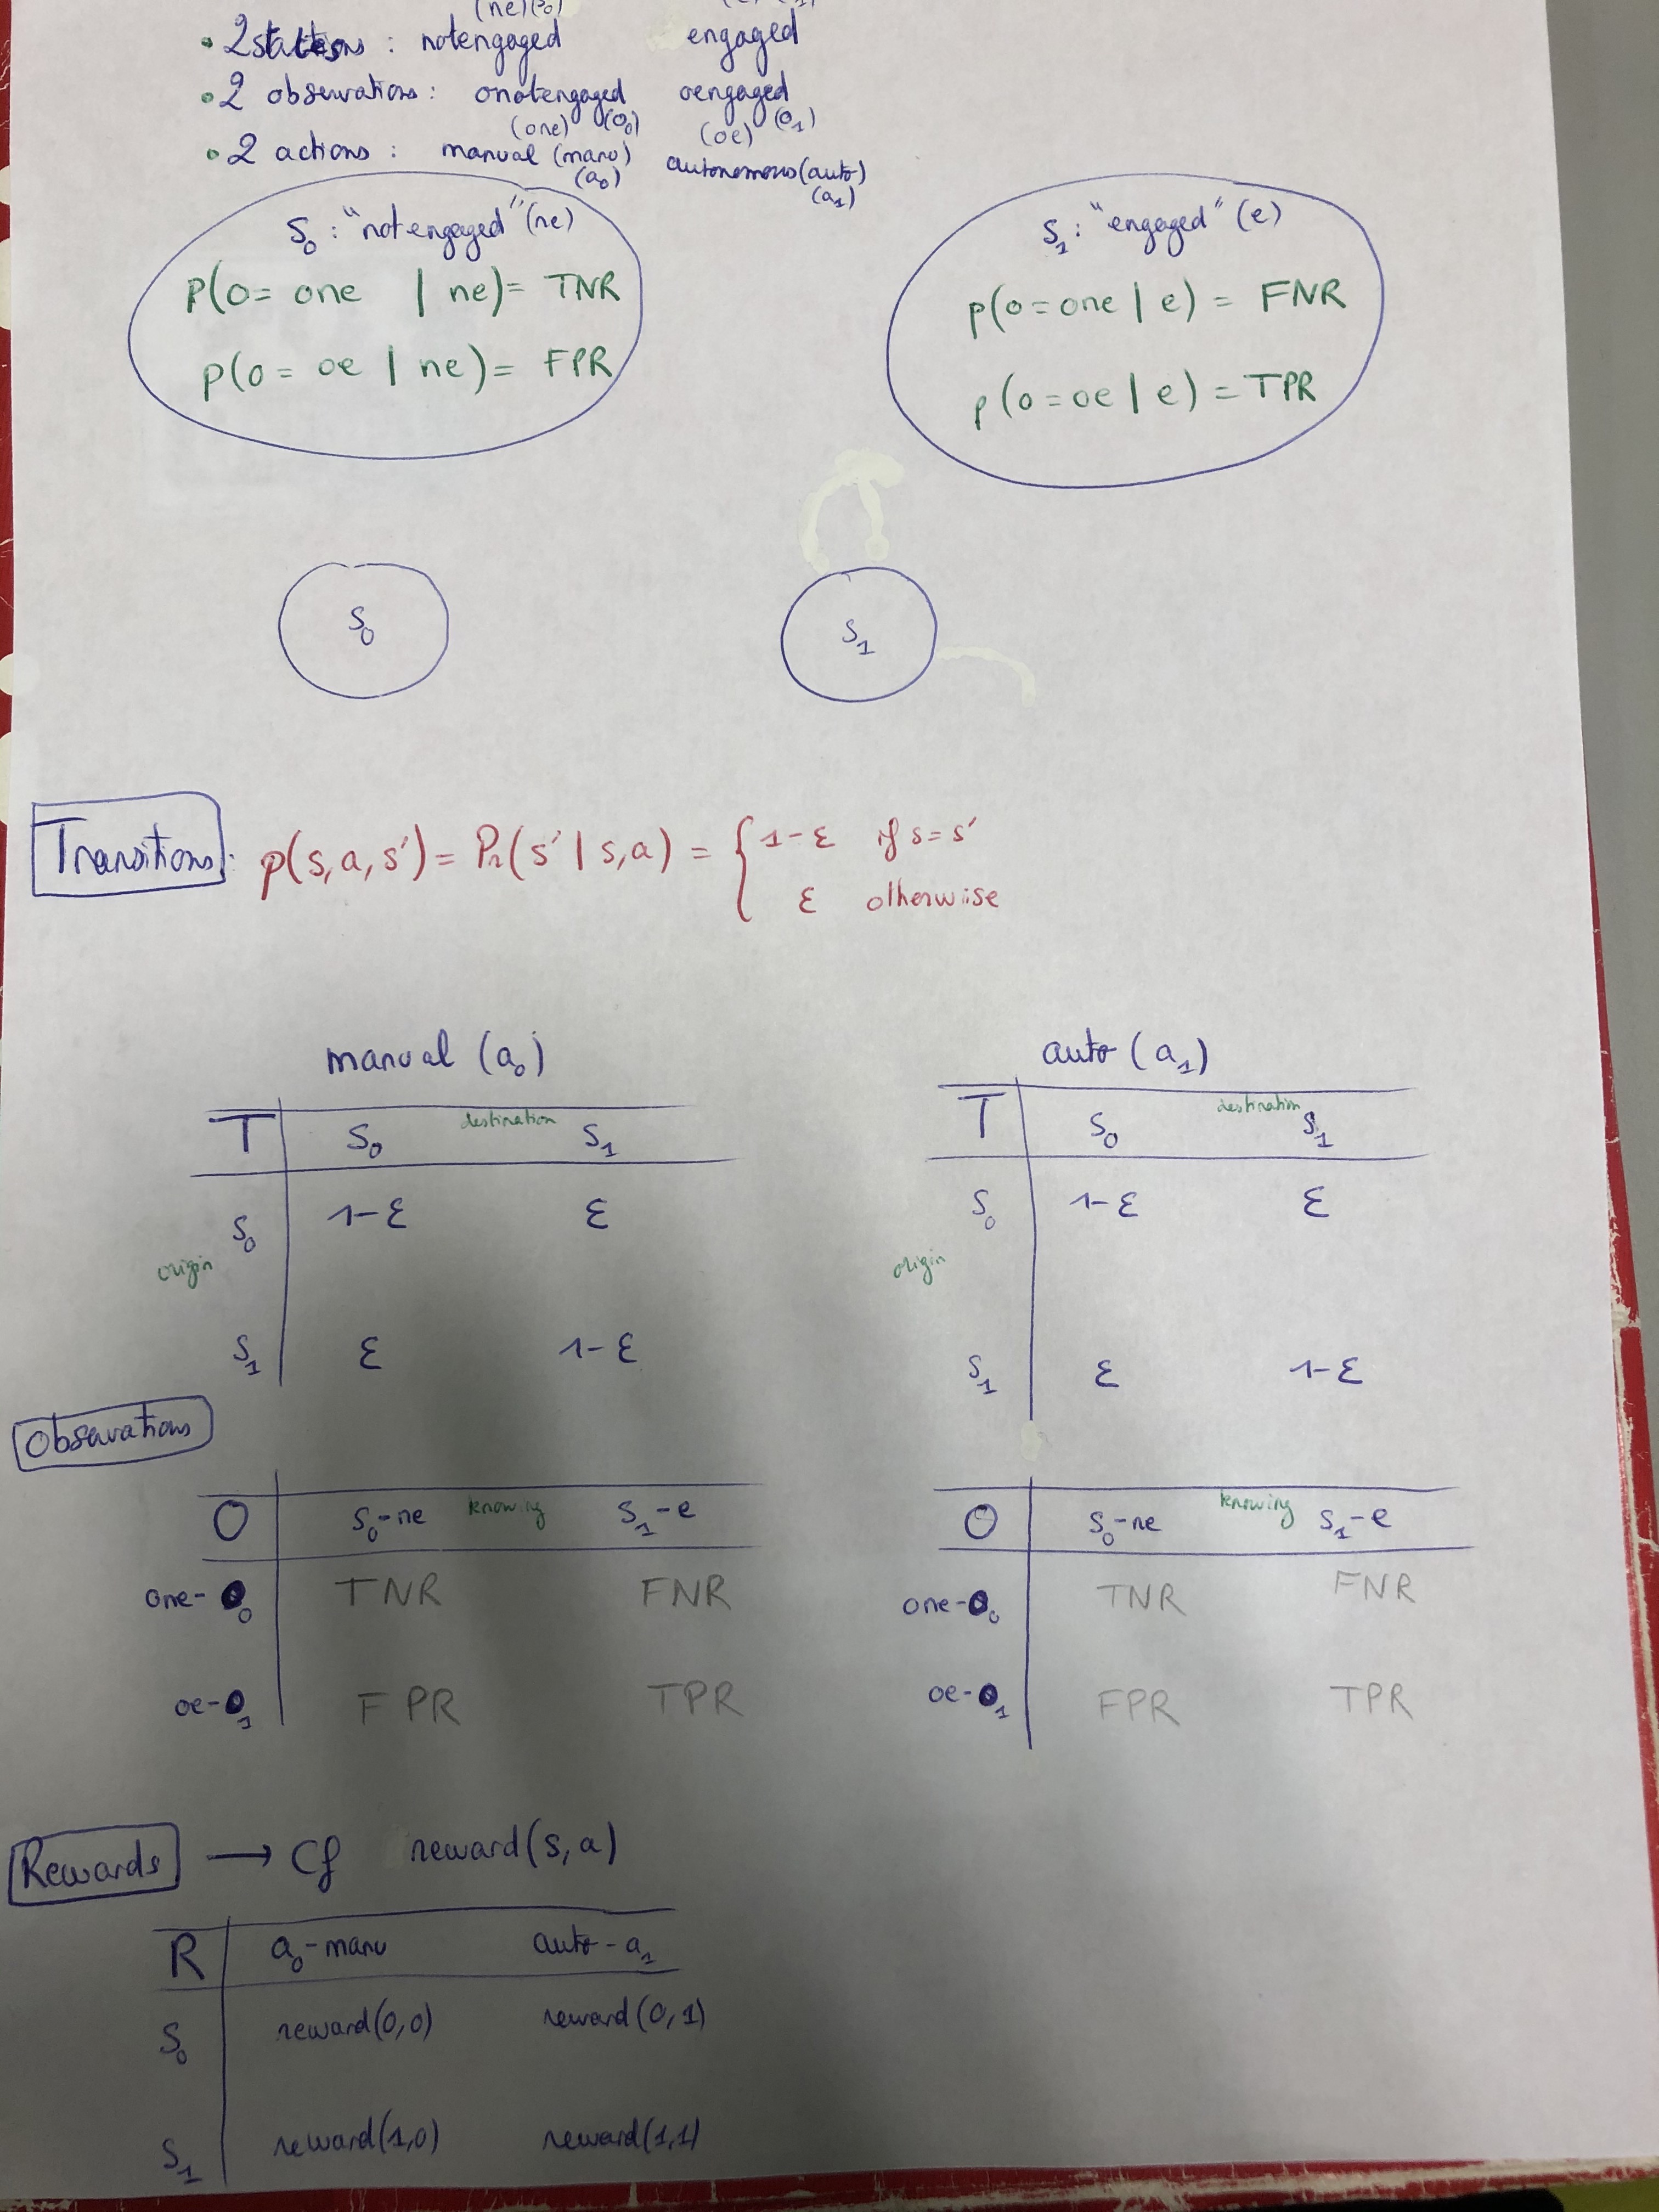 (ne)(s₀)
• 2 states : notengaged engaged
• 2 observations : onotengaged oengaged
(one) (o₀) (oe) (o₁)
• 2 actions : manual (manu) autonomous (auto)
(a₀) (a₁)
S₀ : "notengaged" (ne)
p(o= one | ne) = TNR
p(o= oe | ne) = FPR
S₁ : "engaged" (e)
p(o=one | e) = FNR
p(o=oe | e) = TPR
S₀ S₁
Transitions : p(s,a,s') = Pr(s' | s,a) = { 1-ε if s=s'
ε otherwiise
manual (a₀)
T S₀ destination S₁
S₀ 1-ε ε
origin
S₁ ε 1-ε
auto (a₁)
T S₀ destination S₁
S₀ 1-ε ε
origin
S₁ ε 1-ε
Observations
O S₀-ne knowing S₁-e
one-O₀ TNR FNR
oe-O₁ FPR TPR
O S₀-ne knowing S₁-e
one-O₀ TNR FNR
oe-O₁ FPR TPR
Rewards → Cf reward(s,a)
R a₀-manu auto-a₁
S₀ reward(0,0) reward(0,1)
S₁ reward(1,0) reward(1,1)